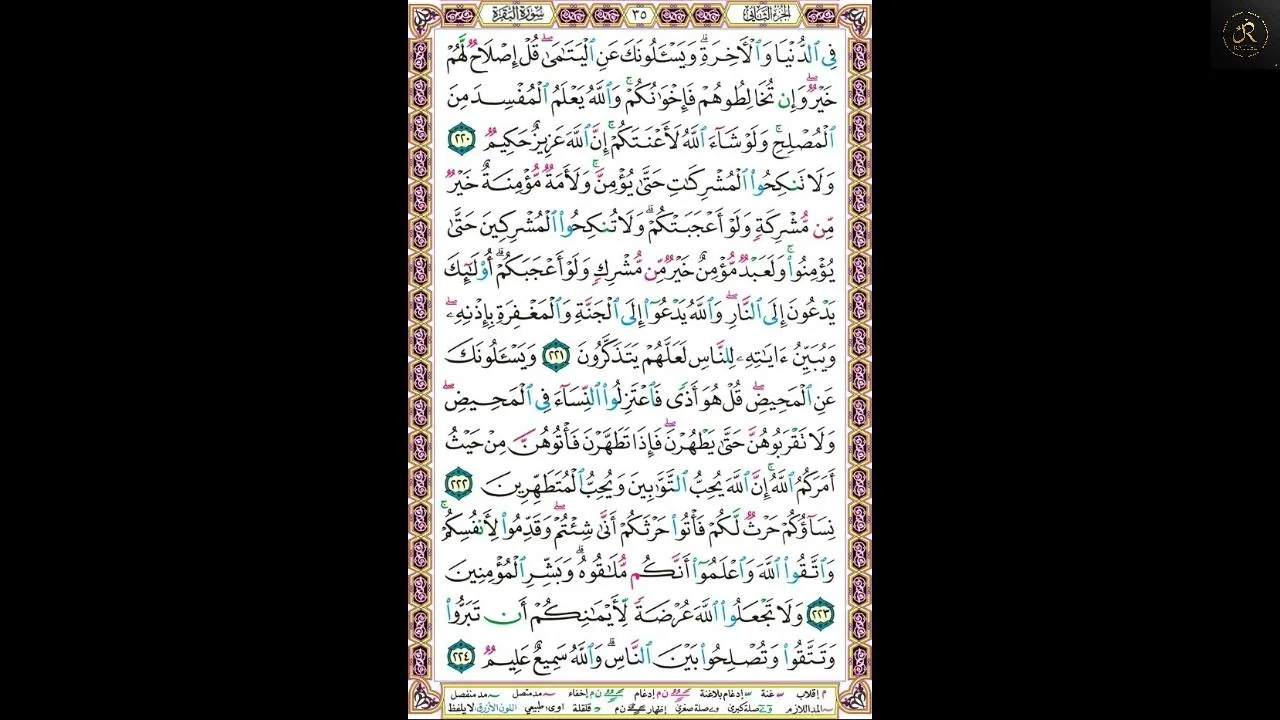 سُورَةُ البَقَرَة ٣٥ الجُزءُ الثَّانِي
فِي ٱلدُّنۡيَا وَٱلۡأٓخِرَةِۗ وَيَسۡـَٔلُونَكَ عَنِ ٱلۡيَتَٰمَىٰۖ قُلۡ إِصۡلَاحٞ لَّهُمۡ
خَيۡرٞۖ وَإِن تُخَالِطُوهُمۡ فَإِخۡوَٰنُكُمۡۚ وَٱللَّهُ يَعۡلَمُ ٱلۡمُفۡسِدَ مِنَ
ٱلۡمُصۡلِحِۚ وَلَوۡ شَآءَ ٱللَّهُ لَأَعۡنَتَكُمۡۚ إِنَّ ٱللَّهَ عَزِيزٌ حَكِيمٞ ٢٢٠
وَلَا تَنكِحُواْ ٱلۡمُشۡرِكَٰتِ حَتَّىٰ يُؤۡمِنَّۚ وَلَأَمَةٞ مُّؤۡمِنَةٌ خَيۡرٞ
مِّن مُّشۡرِكَةٖ وَلَوۡ أَعۡجَبَتۡكُمۡۗ وَلَا تُنكِحُواْ ٱلۡمُشۡرِكِينَ حَتَّىٰ
يُؤۡمِنُواْۚ وَلَعَبۡدٞ مُّؤۡمِنٌ خَيۡرٞ مِّن مُّشۡرِكٖ وَلَوۡ أَعۡجَبَكُمۡۗ أُوْلَٰٓئِكَ
يَدۡعُونَ إِلَى ٱلنَّارِۖ وَٱللَّهُ يَدۡعُوٓاْ إِلَى ٱلۡجَنَّةِ وَٱلۡمَغۡفِرَةِ بِإِذۡنِهِۦۖ
وَيُبَيِّنُ ءَايَٰتِهِۦ لِلنَّاسِ لَعَلَّهُمۡ يَتَذَكَّرُونَ ٢٢١ وَيَسۡـَٔلُونَكَ
عَنِ ٱلۡمَحِيضِۖ قُلۡ هُوَ أَذٗى فَٱعۡتَزِلُواْ ٱلنِّسَآءَ فِي ٱلۡمَحِيضِۖ
وَلَا تَقۡرَبُوهُنَّ حَتَّىٰ يَطۡهُرۡنَۖ فَإِذَا تَطَهَّرۡنَ فَأۡتُوهُنَّ مِنۡ حَيۡثُ
أَمَرَكُمُ ٱللَّهُۚ إِنَّ ٱللَّهَ يُحِبُّ ٱلتَّوَّٰبِينَ وَيُحِبُّ ٱلۡمُتَطَهِّرِينَ ٢٢٢
نِسَآؤُكُمۡ حَرۡثٞ لَّكُمۡ فَأۡتُواْ حَرۡثَكُمۡ أَنَّىٰ شِئۡتُمۡۖ وَقَدِّمُواْ لِأَنفُسِكُمۡۚ
وَٱتَّقُواْ ٱللَّهَ وَٱعۡلَمُوٓاْ أَنَّكُم مُّلَٰقُوهُۗ وَبَشِّرِ ٱلۡمُؤۡمِنِينَ
٢٢٣ وَلَا تَجۡعَلُواْ ٱللَّهَ عُرۡضَةٗ لِّأَيۡمَٰنِكُمۡ أَن تَبَرُّواْ
وَتَتَّقُواْ وَتُصۡلِحُواْ بَيۡنَ ٱلنَّاسِۚ وَٱللَّهُ سَمِيعٌ عَلِيمٞ ٢٢٤
م إقلاب غنة إدغام بلاغنة ن م إدغام ن م إخفاء مد متصل مد منفصل
المد اللازم صلة كبرى صلة صغرى إظهار ن م قلقلة اوى: طبيعي اللون الأزرق لا يلفظ